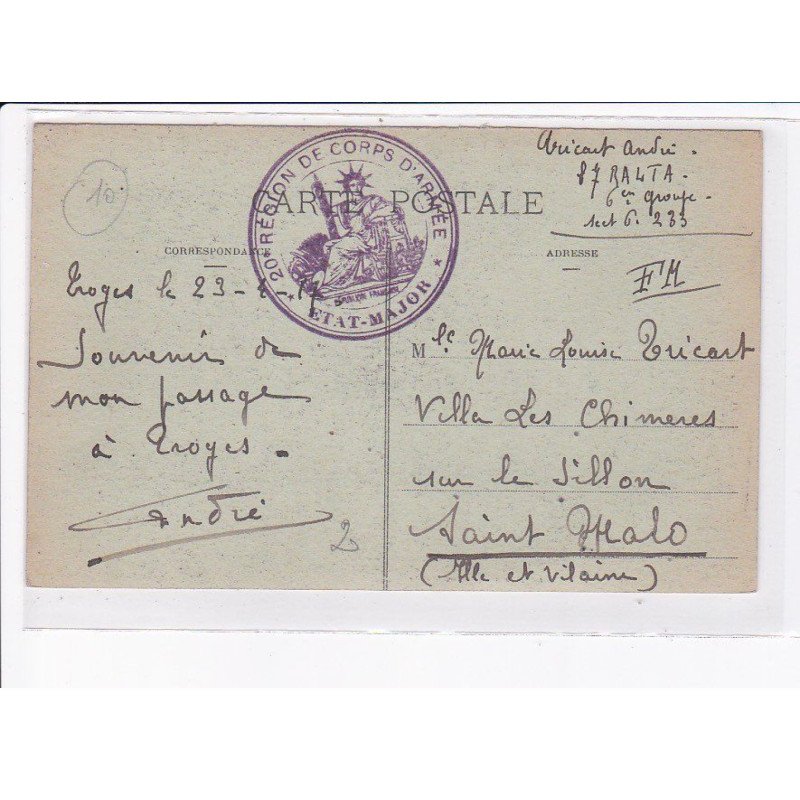 10
20e RÉGION DE CORPS D'ARMÉE
ÉTAT-MAJOR
RÉPUBLIQUE FRANÇAISE
CARTE POSTALE
CORRESPONDANCE
Troyes le 23-
Souvenir de
mon passage
à Troyes -
André
2
Tricart André -
87 RALTA -
6en groupe -
sect 6. 233
ADRESSE
FM
Mlle Marie Louise Tricart
Villa Les Chimeres
sur le Sillon
Saint Malo
(Ille et Vilaine)